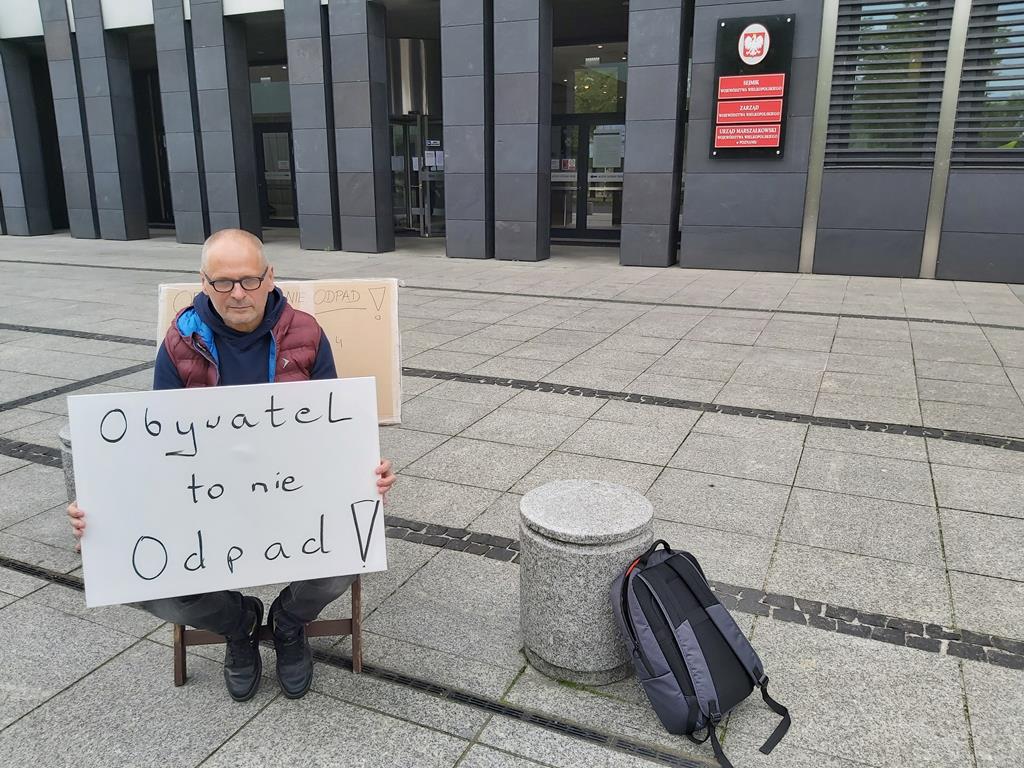 SEJMIK
WOJEWÓDZTWA WIELKOPOLSKIEGO
ZARZĄD
WOJEWÓDZTWA WIELKOPOLSKIEGO
URZĄD MARSZAŁKOWSKI
WOJEWÓDZTWA WIELKOPOLSKIEGO
w POZNANIU
NIE ODPAD!
4
ObywateL
to nie
Odpad!